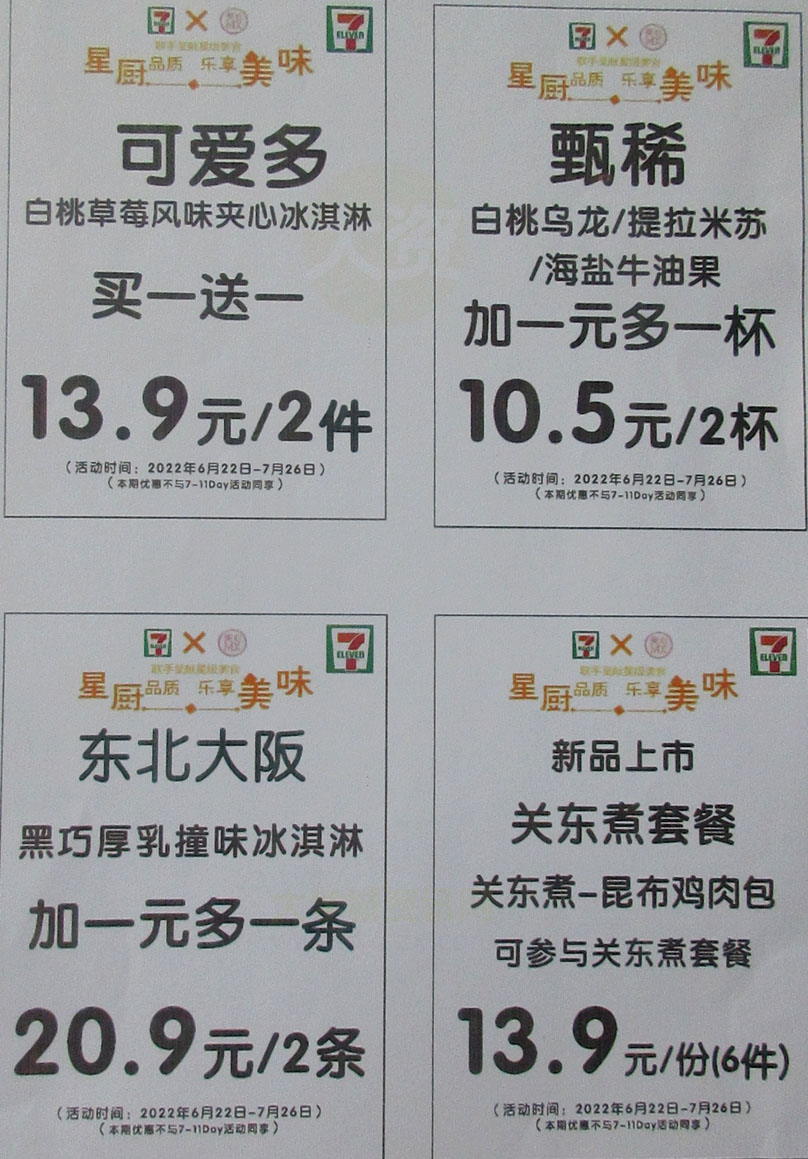 7 ELEVEN
星厨品质 乐享美味
可爱多
白桃草莓风味夹心冰淇淋
买一送一
13.9元/2件
(活动时间：2022年6月22日-7月26日)
(本期优惠不与7-11Day活动同享)
7 ELEVEN
星厨品质 乐享美味
甄稀
白桃乌龙/提拉米苏
/海盐牛油果
加一元多一杯
10.5元/2杯
(活动时间：2022年6月22日-7月26日)
(本期优惠不与7-11Day活动同享)
7 ELEVEN
星厨品质 乐享美味
东北大阪
黑巧厚乳撞味冰淇淋
加一元多一条
20.9元/2条
(活动时间：2022年6月22日-7月26日)
(本期优惠不与7-11Day活动同享)
7 ELEVEN
星厨品质 乐享美味
新品上市
关东煮套餐
关东煮-昆布鸡肉包
可参与关东煮套餐
13.9元/份(6件)
(活动时间：2022年6月22日-7月26日)
(本期优惠不与7-11Day活动同享)